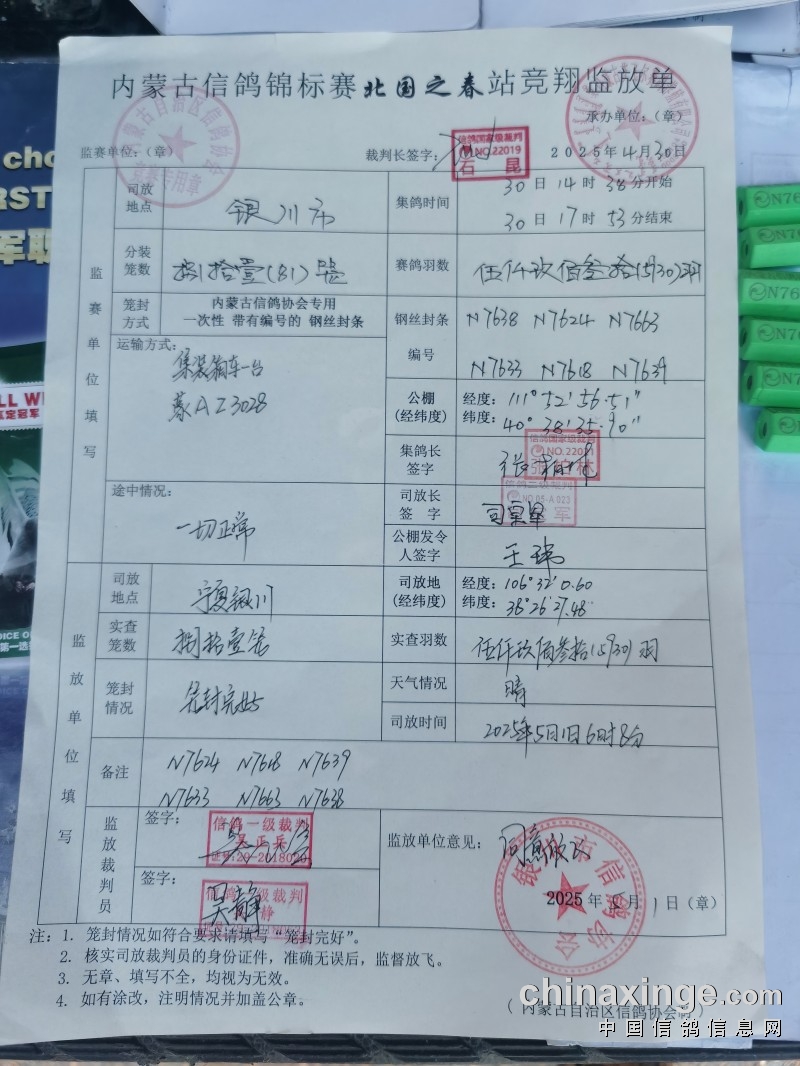 内蒙古信鸽锦标赛北国之春站竞翔监放单
承办单位:(章)
监赛单位:(章)
裁判长签字:
信鸽国家级裁判
NO.22019
石昆
2025年4月30日
监赛单位填写
司放地点
银川市
集鸽时间
30日14时38分开始
30日17时53分结束
分装笼数
捌拾壹(81)笼
赛鸽羽数
伍仟玖佰叁拾(5930)羽
笼封方式
内蒙古信鸽协会专用
一次性 带有编号的 钢丝封条
钢丝封条编号
N7638 N7624 N7663
N7633 N7618 N7639
运输方式:
集装箱车一台
蒙AZ3028
公棚(经纬度)
经度:111°52′56.51″
纬度:40°38′35.90″
集鸽长签字
信鸽国家级裁判
NO.22021
途中情况:
一切正常
司放长签字
信鸽二级裁判
NO.05-A.022
公棚发令人签字
王玮
监放单位填写
司放地点
宁夏银川
司放地(经纬度)
经度:106°32′0.60
纬度:38°26′27.48
实查笼数
捌拾壹笼
实查羽数
伍仟玖佰叁拾(5930)羽
笼封情况
笼封完好
天气情况
晴
司放时间
2025年5月1日6时8分
备注
N7624 N7618 N7639
N7633 N7663 N7638
监放裁判员
签字:
信鸽一级裁判
吴正兵
签字:
吴静
监放单位意见:
同意放飞
银川市信鸽协会
2025年5月1日(章)
注:1. 笼封情况如符合要求请填写“笼封完好”。
2. 核实司放裁判员的身份证件,准确无误后,监督放飞。
3. 无章、填写不全,均视为无效。
4. 如有涂改,注明情况并加盖公章。
(内蒙古自治区信鸽协会制)
chinaxinge.com
中国信鸽信息网